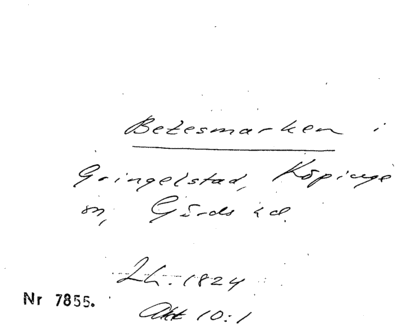 Betesmarken i
Gringelstad, Köpinge
sn, Gärds hd.
Lh. 1824
Nr 7855.
Akt 10:1